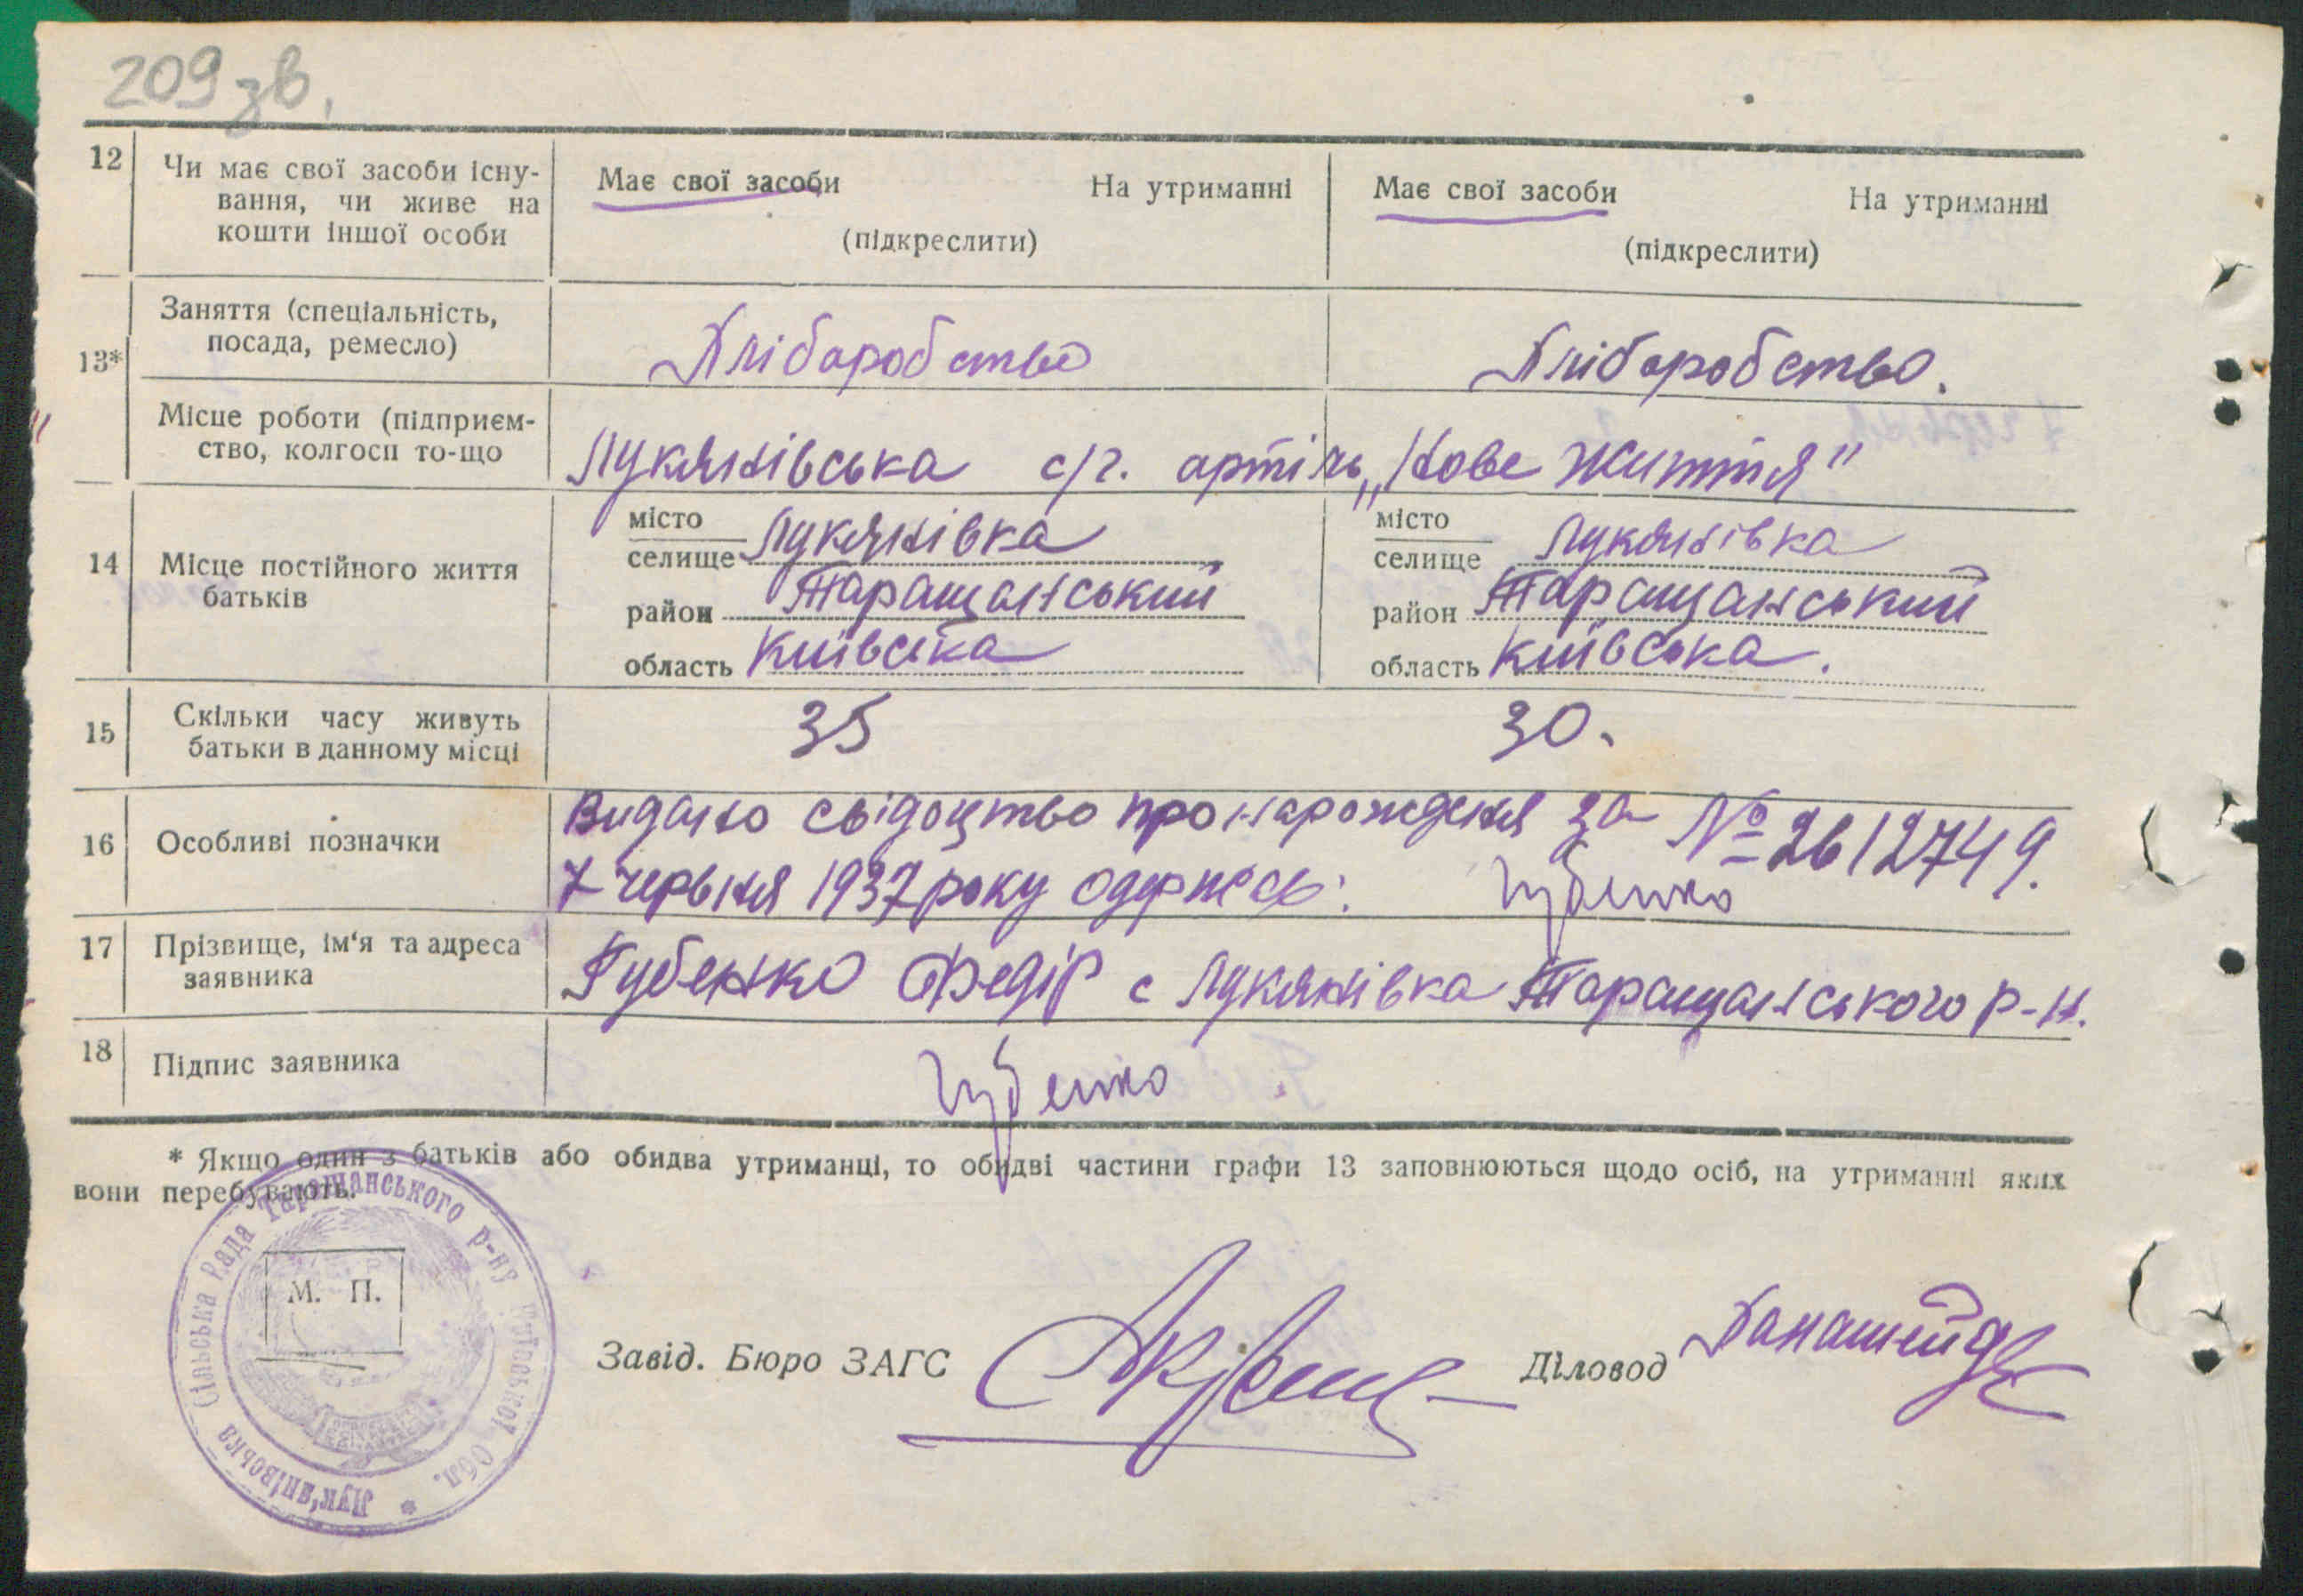 209 зв.
12 Чи має свої засоби існу-
вання, чи живе на
кошти іншої особи
Має свої засоби На утриманні
(підкреслити)
Має свої засоби На утриманні
(підкреслити)
13*
Заняття (спеціальність,
посада, ремесло)
Хліборобство
Хліборобство.
Місце роботи (підприєм-
ство, колгосп то-що
Лукянівська с/г. артіль „Нове життя"
14 Місце постійного життя
батьків
місто
селище Лукянівка
район Таращанський
область Київська
місто
селище Лукянівка
район Таращанський
область Київська.
15 Скільки часу живуть
батьки в данному місці
35
30.
16 Особливі позначки
Видано свідоцтво про народження за № 2612749.
7 червня 1937 року одержав: Губенко
17 Прізвище, ім'я та адреса
заявника
Губенко Федір с Лукянівка Таращанського р-н.
18 Підпис заявника
Губенко
* Якщо один з батьків або обидва утриманці, то обидві частини графи 13 заповнюються щодо осіб, на утриманні яких
вони перебувають.
Лук'янівська Сільська Рада Таращанського р-ну Київської Обл. *
М. П.
Завід. Бюро ЗАГС
Діловод